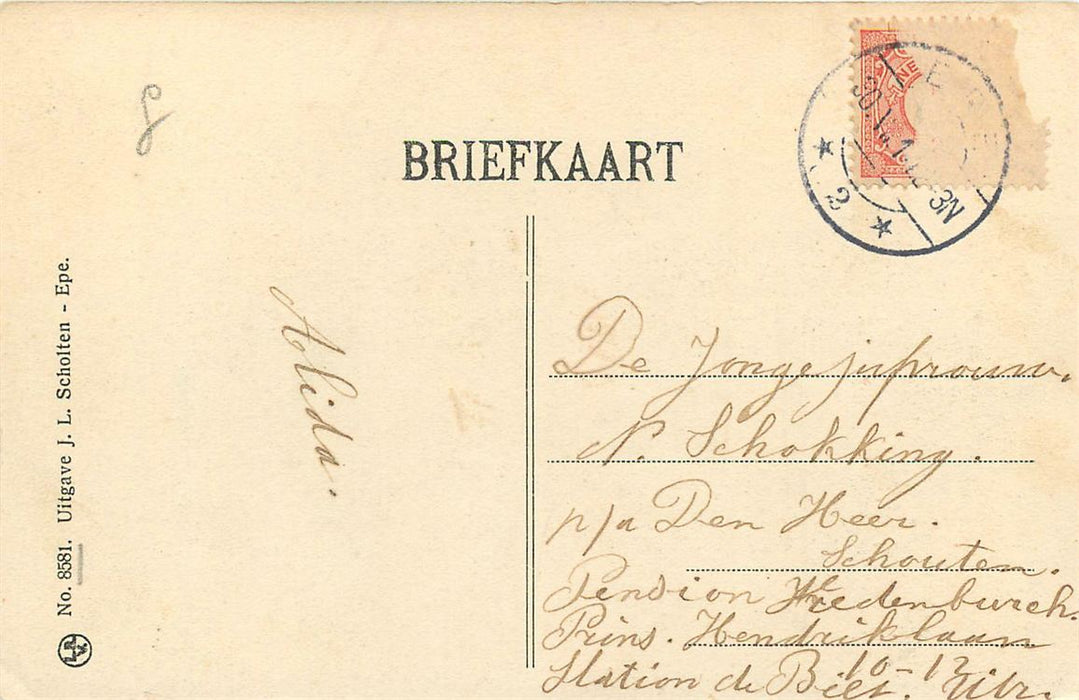 BRIEFKAART
No. 8581. Uitgave J. L. Scholten - Epe.
Alida.
De Jongejufrouw.
N. Schokking.
p/a Den Heer.
Schouten.
Pension Vredenburch.
Prins. Hendriklaan
10-12
Station de Bilt. Utr.
EPE
3N
2